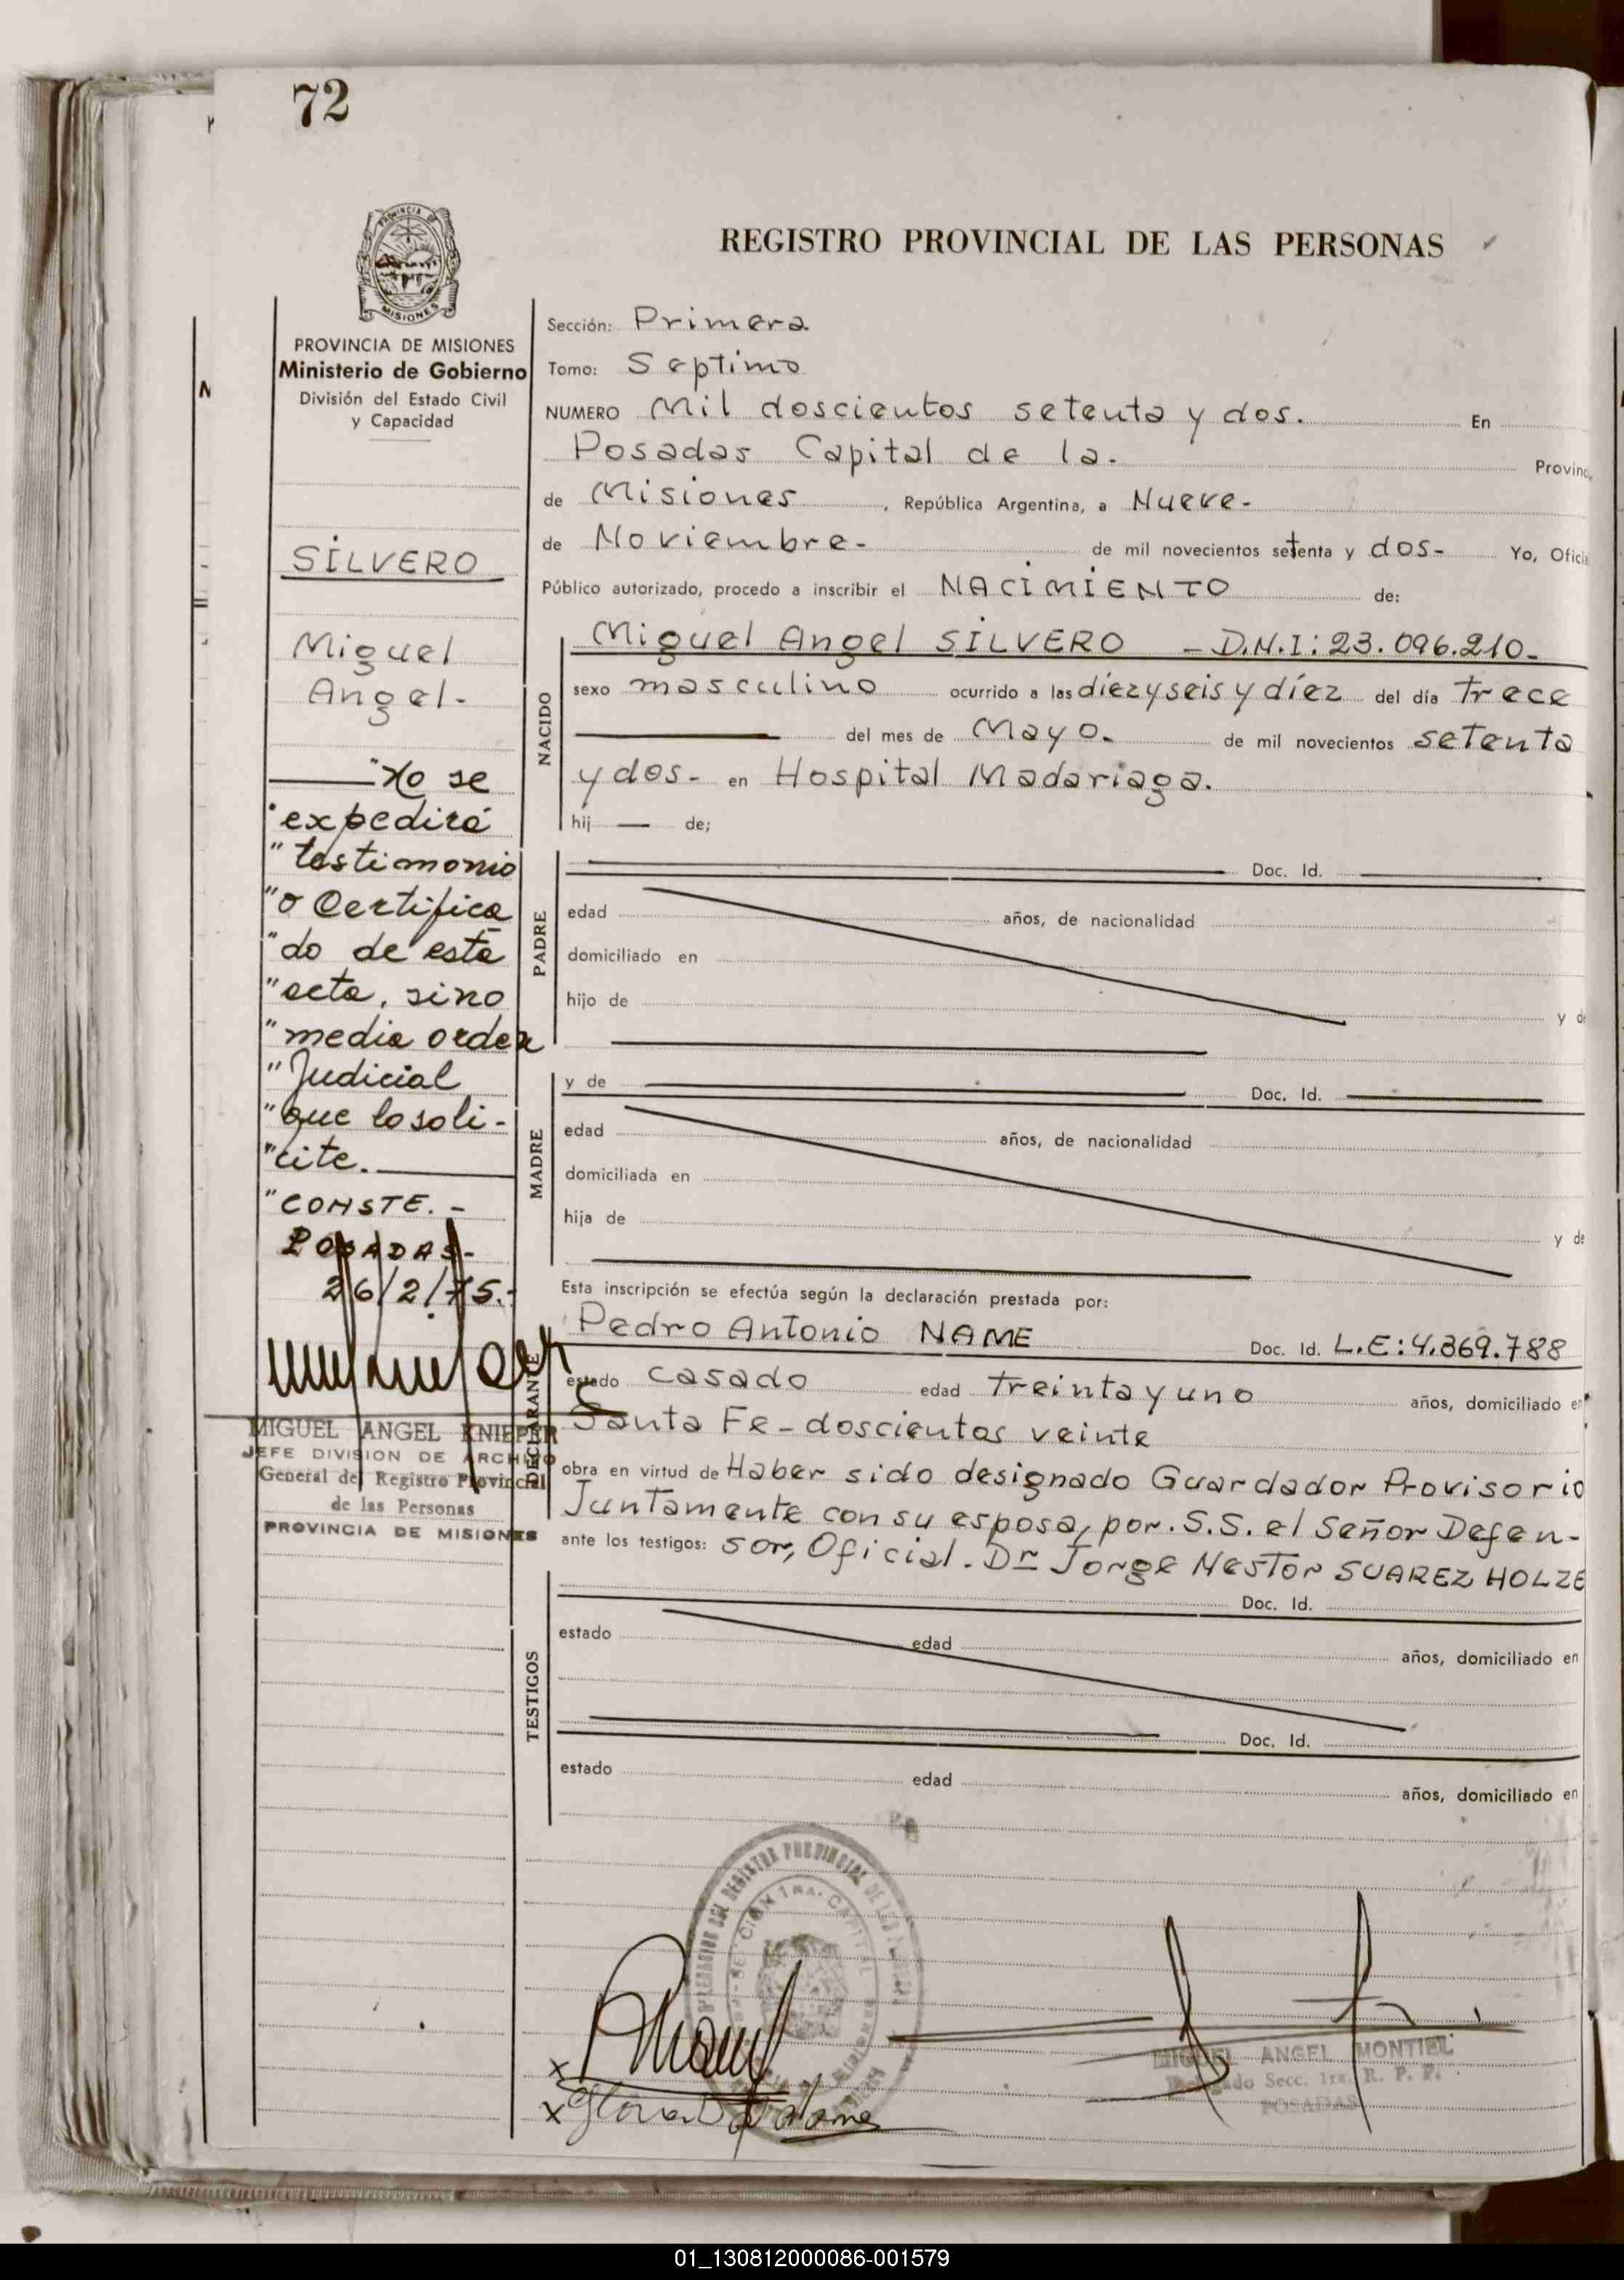 72
REGISTRO PROVINCIAL DE LAS PERSONAS
PROVINCIA DE
MISIONES
PROVINCIA DE MISIONES
Ministerio de Gobierno
División del Estado Civil
y Capacidad
SILVERO
Miguel
Angel-
"No se
"expedirá
"testimonio
"o Certifica
"do de esta
"acta, sino
"media orden
"Judicial
"que lo soli-
"cite.
"CONSTE.-
POSADAS-
26/2/75.-
MIGUEL ANGEL KNIEPER
JEFE DIVISION DE ARCHIVO
General del Registro Provincial
de las Personas
PROVINCIA DE MISIONES
Sección: Primera
Tomo: Septimo
NUMERO Mil doscientos setenta y dos. En
Posadas Capital de la. Provinc
de Misiones, República Argentina, a Nueve-
de Noviembre- de mil novecientos setenta y dos- Yo, Oficia
Público autorizado, procedo a inscribir el NACIMIENTO de:
NACIDO
Miguel Angel SILVERO - D.N.I: 23.096.210-
sexo masculino ocurrido a las diezyseis y díez del día Trece
del mes de Mayo. de mil novecientos setenta
y dos- en Hospital Madariaga.
hij — de;
PADRE
Doc. Id.
edad años, de nacionalidad
domiciliado en
hijo de y de
MADRE
y de Doc. Id.
edad años, de nacionalidad
domiciliada en
hija de y de
Esta inscripción se efectúa según la declaración prestada por:
DECLARANTE
Pedro Antonio NAME Doc. Id. L.E: 4.869.788
estado casado edad treinta y uno años, domiciliado en
Santa Fe-doscientos veinte
obra en virtud de Haber sido designado Guardador Provisorio
Juntamente con su esposa, por. S.S. el Señor Defen-
ante los testigos: sor, Oficial. Dr Jorge Nestor SUAREZ HOLZE
TESTIGOS
Doc. Id.
estado edad años, domiciliado en
Doc. Id.
estado edad años, domiciliado en
MIGUEL ANGEL MONTIEL
Delegado Secc. 1ra. R. P. P.
POSADAS
01_130812000086-001579